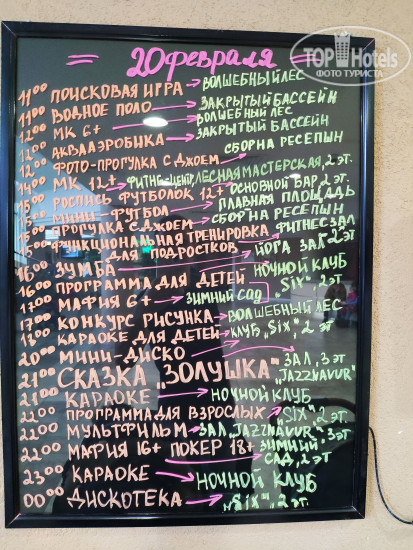 TOPHotels
ФОТО ТУРИСТА
= 20 февраля =
11⁰⁰ ПОИСКОВАЯ ИГРА → ВОЛШЕБНЫЙ ЛЕС
11⁰⁰ ВОДНОЕ ПОЛО → ЗАКРЫТЫЙ БАССЕЙН
12⁰⁰ МК 6+ → ВОЛШЕБНЫЙ ЛЕС
12⁰⁰ АКВААЭРОБИКА → ЗАКРЫТЫЙ БАССЕЙН
12⁰⁰ ФОТО-ПРОГУЛКА С ДЖОЕМ СБОР НА РЕСЕПШН
14⁰⁰ МК 12+ → ФИТНЕС-ЦЕНТР, ЛЕСНАЯ МАСТЕРСКАЯ, 2 ЭТ.
15⁰⁰ РОСПИСЬ ФУТБОЛОК 12+ ОСНОВНОЙ БАР, 2 ЭТ.
15⁰⁰ МИНИ-ФУТБОЛ → ГЛАВНАЯ ПЛОЩАДЬ
15⁰⁰ ПРОГУЛКА С ДЖОЕМ → СБОР НА РЕСЕПШН
15⁰⁰ ФУНКЦИОНАЛЬНАЯ ТРЕНИРОВКА ФИТНЕС ЗАЛ
ДЛЯ ПОДРОСТКОВ 2 ЭТ
16⁰⁰ ЗУМБА → ЙОГА ЗАЛ 2 ЭТ
16⁰⁰ ПРОГРАММА ДЛЯ ДЕТЕЙ НОЧНОЙ КЛУБ
17⁰⁰ МАФИЯ 6+ → ЗИМНИЙ САД, „SIX", 2 ЭТ
17⁰⁰ КОНКУРС РИСУНКА → ВОЛШЕБНЫЙ ЛЕС
18⁰⁰ КАРАОКЕ ДЛЯ ДЕТЕЙ → КЛУБ „SIX", 2 ЭТ
20⁰⁰ МИНИ-ДИСКО
21⁰⁰ СКАЗКА „ЗОЛУШКА" ЗАЛ, 3 ЭТ „JAZZNAVUR"
21⁰⁰ КАРАОКЕ → НОЧНОЙ КЛУБ
22⁰⁰ ПРОГРАММА ДЛЯ ВЗРОСЛЫХ → „SIX", 2 ЭТ.
22⁰⁰ МУЛЬТФИЛЬМ → ЗАЛ „JAZZNAVUR", 3 ЭТ
22⁰⁰ МАФИЯ 16+ ПОКЕР 18+ ЗИМНИЙ САД, 2 ЭТ
23⁰⁰ КАРАОКЕ → НОЧНОЙ КЛУБ
00⁰⁰ ДИСКОТЕКА → „SIX", 2 ЭТ.